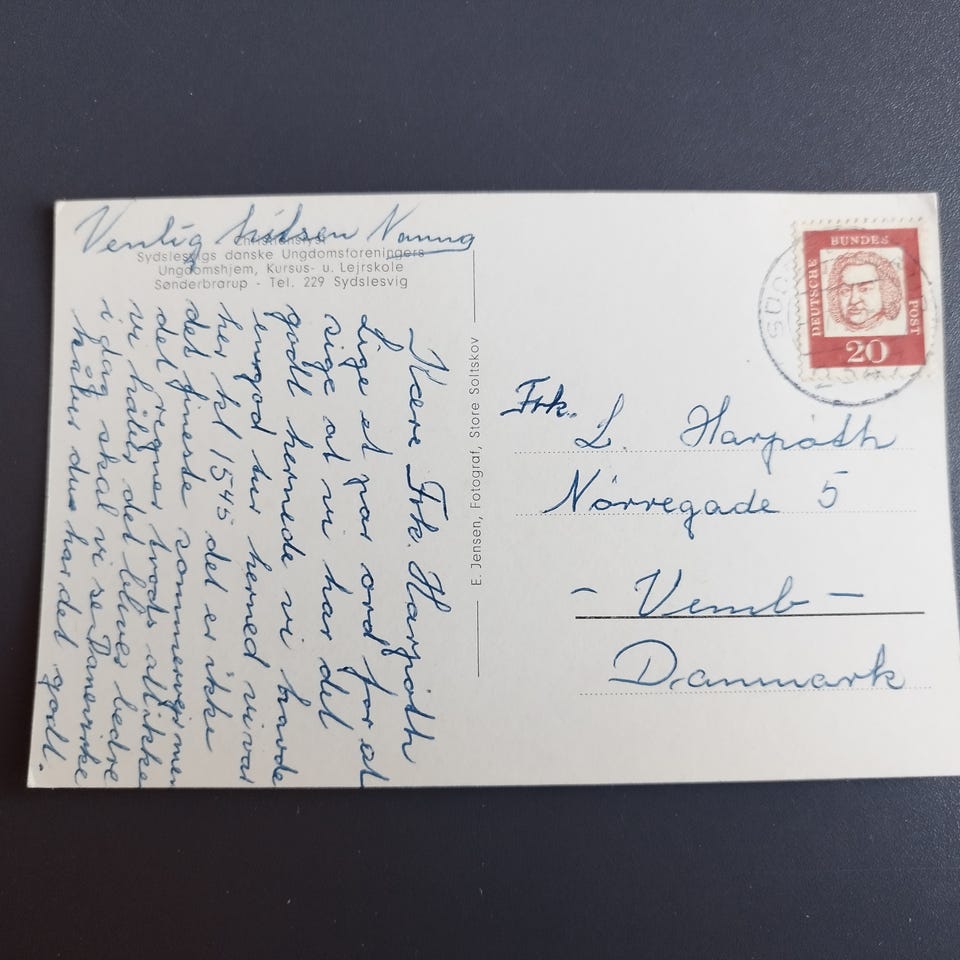 Venlig hilsen Nanna
Christianslyst
Sydslesvigs danske Ungdomsforeningers
Ungdomshjem, Kursus- u. Lejrskole
Sønderbrarup - Tel. 229 Sydslesvig
Kære Frk. Harpøth
Lige et par ord for at
sige at vi har det
godt hernede vi havde
en god tur herned vi var
her kl 1545 det er ikke
det fineste sommervejr men
det regner trods alt ikke
vi håber det bliver bedre
i dag skal vi se Danevirke
håber du har det godt.
E. Jensen, Fotograf, Store Soltskov
DEUTSCHE BUNDES POST
20
Frk. L. Harpøth
Nørregade 5
- Vemb -
Danmark